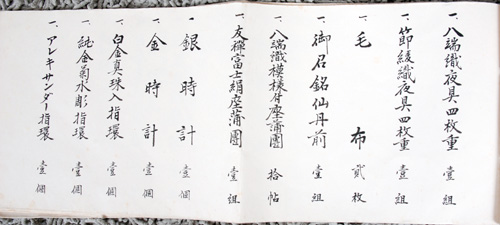 一、八端織夜具四枚重 壹組
一、節綾織夜具四枚重 壹組
一、毛布 貳枚
一、御召銘仙丹前 壹組
一、八端織模様付座蒲團 拾帖
一、友禪富士絹座蒲團 壹組
一、銀時計 壹個
一、金時計 壹個
一、白金真珠入指環 壹個
一、純金菊水彫指環 壹個
一、アレキサンダー指環 壹個